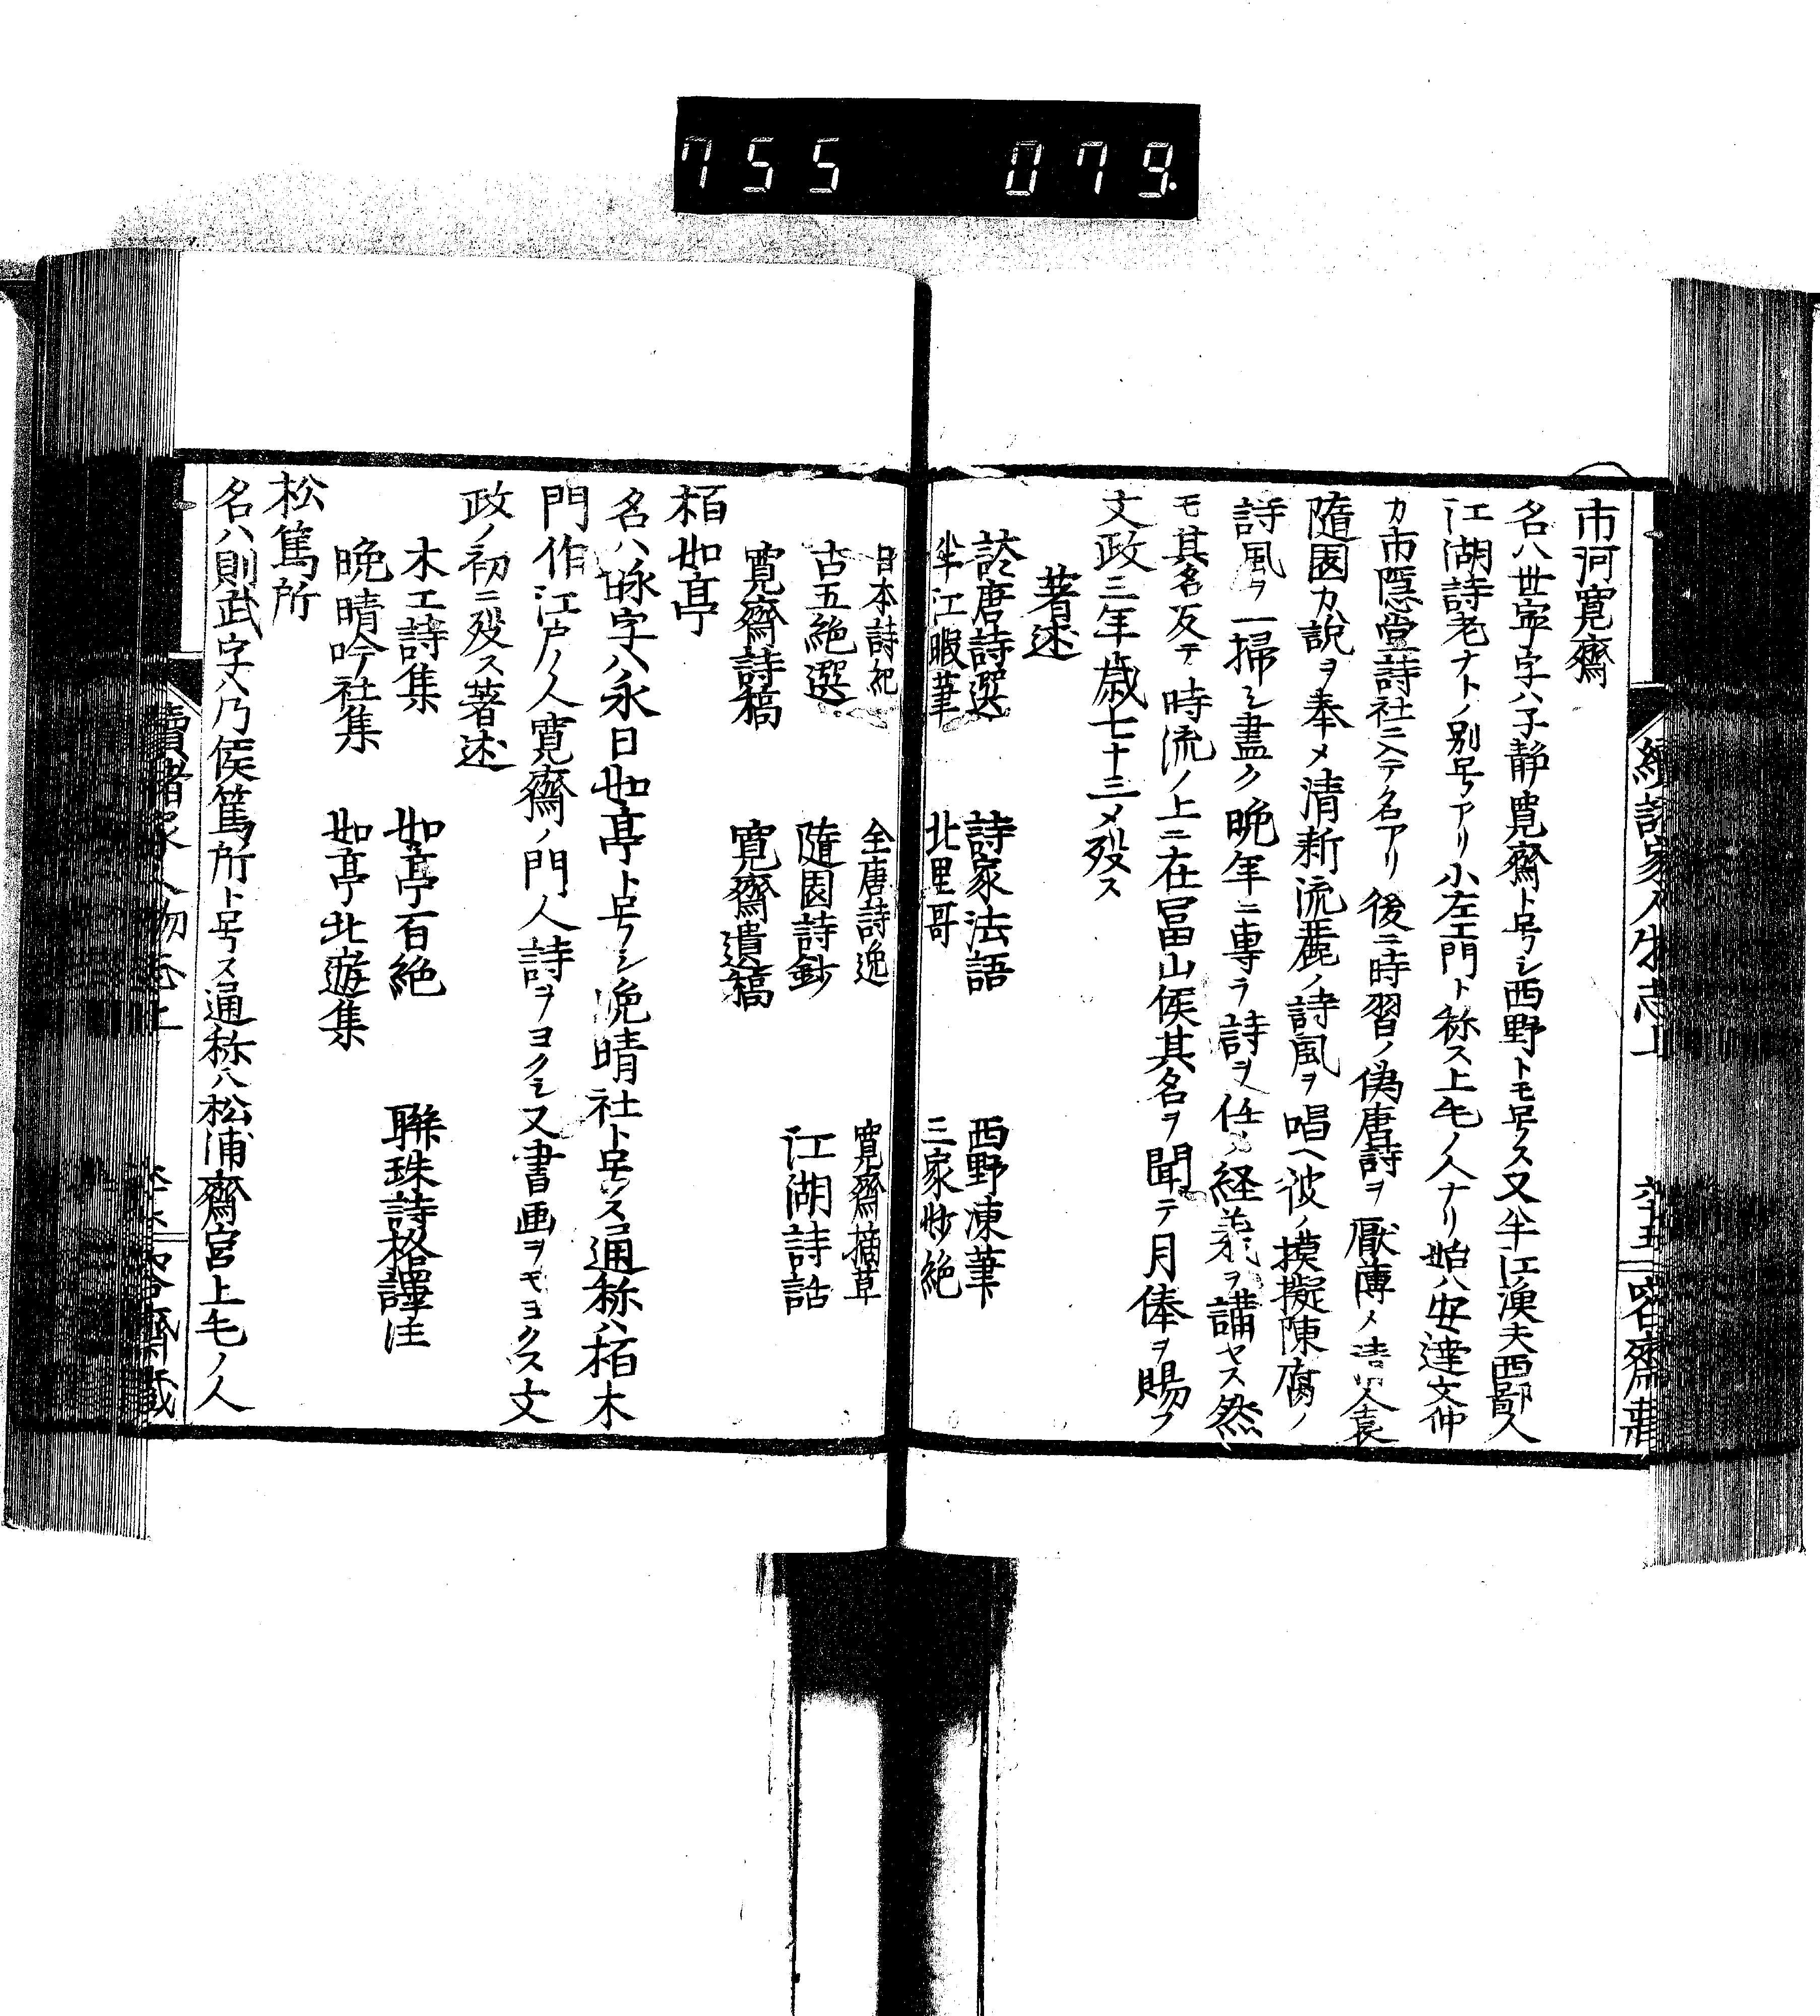 755 079
續諸家人物志上
市河寛齋
名ハ世寧字ハ子静寛齋ト号シ西野トモ号ス又半江漁夫西鄙人
江湖詩老ナトノ別号アリ小左エ門ト称ス上毛ノ人ナリ始ハ安達文仲
カ市隠堂詩社ニ入テ名アリ後ニ時習ノ偽唐詩ヲ厭薄メ清人袁
隨園カ説ヲ奉メ清新流麗ノ詩風ヲ唱ヘ彼ノ摸擬陳腐ノ
詩風ヲ一掃シ盡ク晩年ニ専ラ詩ヲ任シ経義ヲ講セス然
モ其名反テ時流ノ上ニ在冨山侯其名ヲ聞テ月俸ヲ賜フ
文政三年歳七十三メ殁ス
著述
談唐詩選 詩家法語 西野凍筆
半江暇筆 北里哥 三家妙絶
日本詩紀 全唐詩逸 寛齋摘草
古五絶選 隨园詩鈔 江湖詩話
寛齋詩稿 寛齋遺稿
栢如亭
名ハ昹字ハ永日如亭ト号シ晩晴社ト号ス通称ハ栢木
門作江户ノ人寛齋ノ門人詩ヲヨクシ又書画ヲモヨクス文
政ノ初ニ殁ス著述
木工詩集 如亭百絶 聯珠詩格譯注
晩晴吟社集 如亭北遊集
松篤所
名ハ則武字ハ乃侯篤所ト号ス通称ハ松浦齋宮上毛ノ人
續諸家人物志上